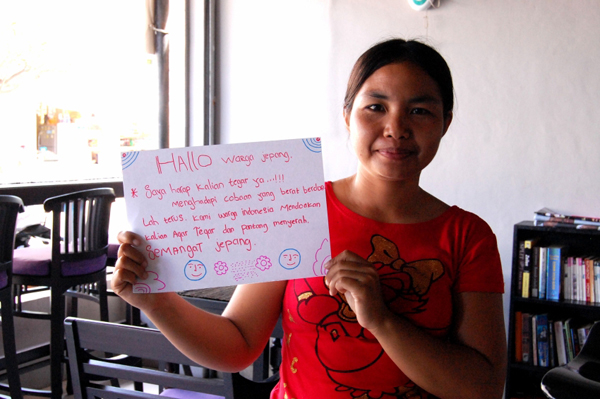 HALLO warga jepang.
* Saya harap kalian tegar ya...!!!
menghadapi cobaan yang berat berdoa
Lah terus. kami warga indonesia Mendoakan
kalian Agar Tegar dan pantang menyerah.
SEMANGAT jepang.